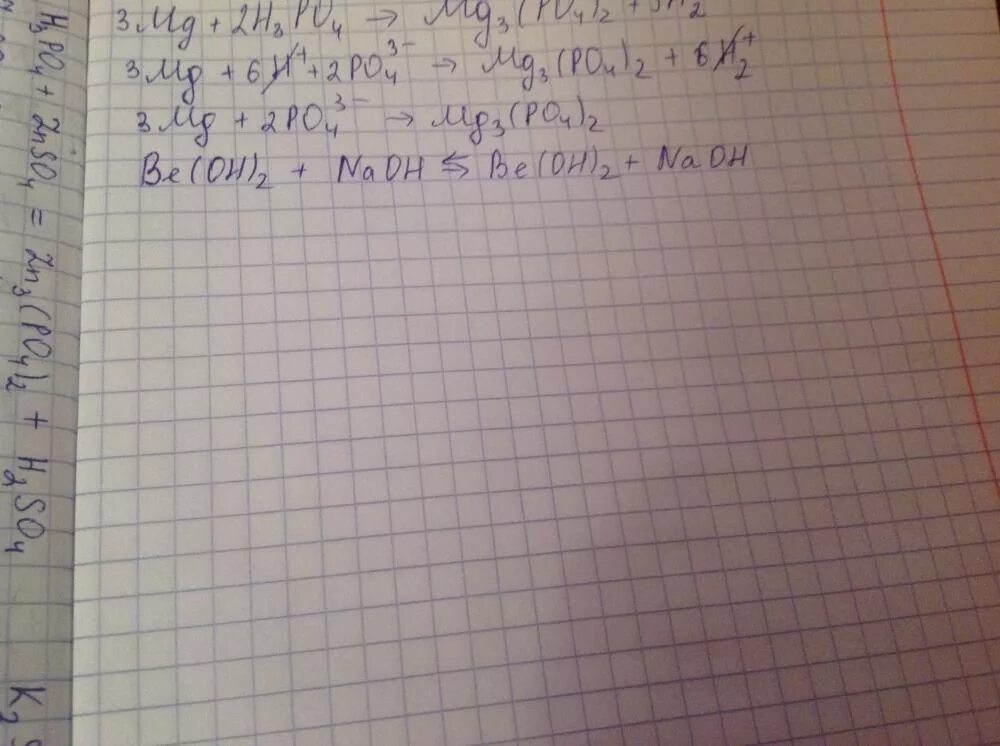 3Mg + 2H₃PO₄ → Mg₃(PO₄)₂ + 3H₂
3Mg + 6H⁺ + 2PO₄³⁻ → Mg₃(PO₄)₂ + 6H₂⁺
3Mg + 2PO₄³⁻ → Mg₃(PO₄)₂
Be(OH)₂ + NaOH ⇆ Be(OH)₂ + NaOH
H₃PO₄ + ZnSO₄ = Zn₃(PO₄)₂ + H₂SO₄
K₂S